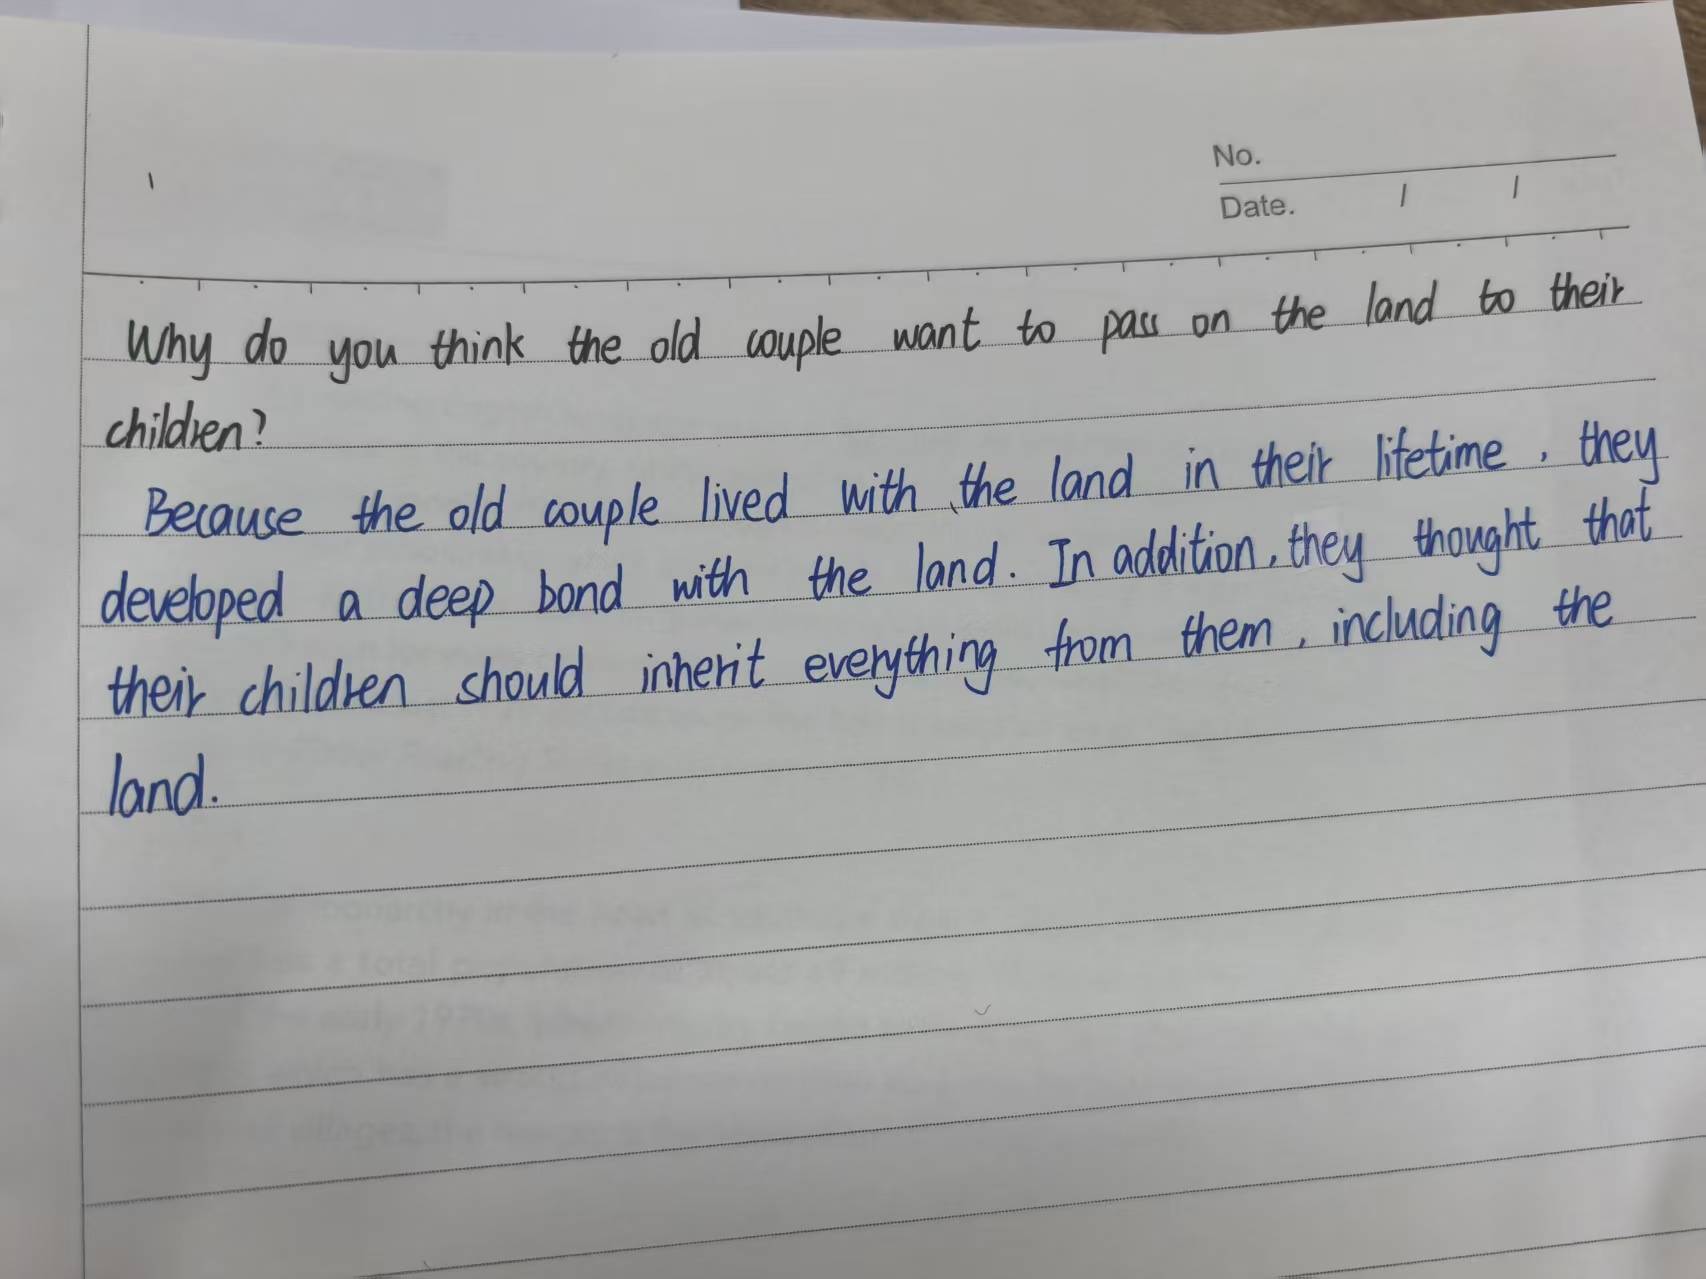 No.
Date. / /
Why do you think the old couple want to pass on the land to their
children?
Because the old couple lived with the land in their lifetime, they
developed a deep bond with the land. In addition, they thought that
their children should inherit everything from them, including the
land.